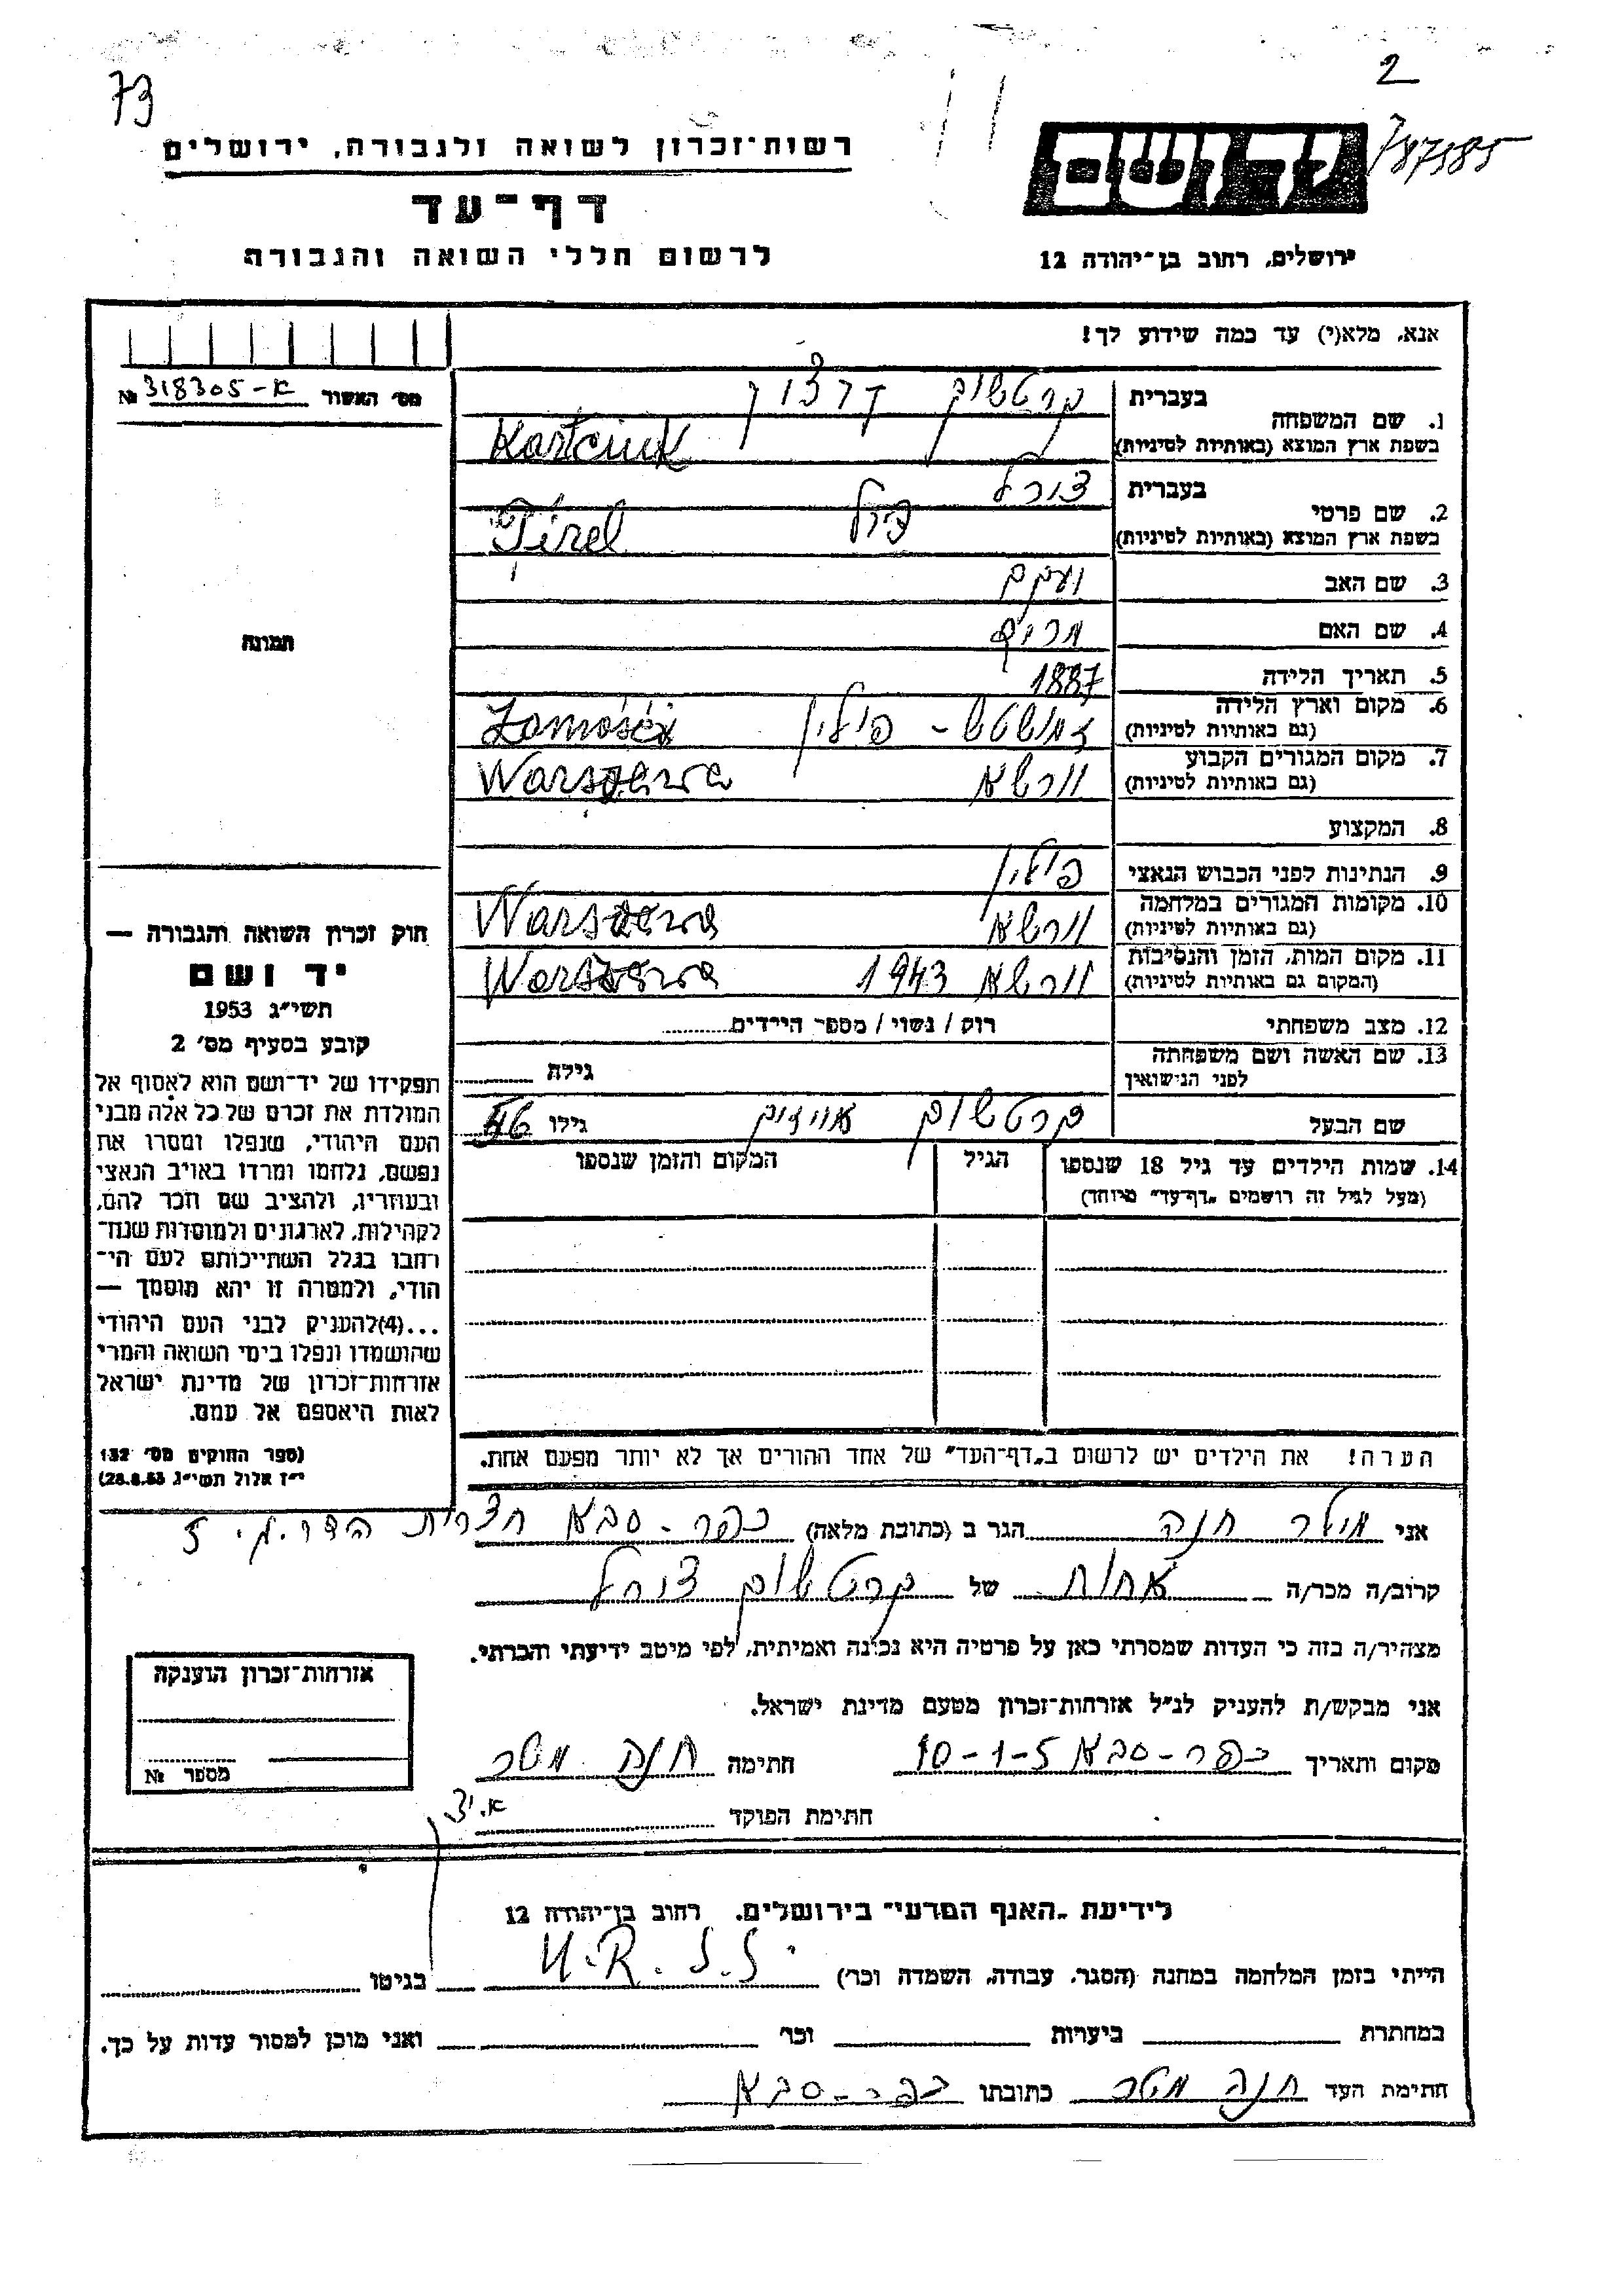 73
2
787385
רשות־זכרון לשואה ולגבורה, ירושלים
דף־עד
לרשום חללי השואה והגבורה
ידושם
ירושלים, רחוב בן־יהודה 12
אנא, מלא(י) עד כמה שידוע לך!
מס׳ האשור 318305-א №
תמונה
חוק זכרון השואה והגבורה —
יד ושם
תשי״ג 1953
קובע בסעיף מס׳ 2
תפקידו של יד־ושם הוא לאסוף אל
המולדת את זכרם של כל אלה מבני
העם היהודי, שנפלו ומסרו את
נפשם, נלחמו ומרדו באויב הנאצי
ובעוזריו, ולהציב שם וזכר להם,
לקהילות, לארגונים ולמוסדות שנח־
רחבו בגלל השתייכותם לעם הי־
הודי, ולמטרה זו יהא מוסמך —
...(4)להעניק לבני העם היהודי
שהושמדו ונפלו בימי השואה והמרי
אזרחות־זכרון של מדינת ישראל
לאות היאספם אל עמם.
(ספר החוקים מס׳ 132
י״ז אלול תשי״ג, 28.8.53)
1. שם המשפחה בעברית קרטשוק
בשפת ארץ המוצא (באותיות לטיניות) Kartciuk
2. שם פרטי בעברית צורל
בשפת ארץ המוצא (באותיות לטיניות) פירל Pirel
3. שם האב יעקב
4. שם האם מרים
5. תאריך הלידה 1887
6. מקום וארץ הלידה (גם באותיות לטיניות) פולין Zamość
7. מקום המגורים הקבוע (גם באותיות לטיניות) וורשא Warszawa
8. המקצוע
9. הנתינות לפני הכבוש הנאצי פולין
10. מקומות המגורים במלחמה (גם באותיות לטיניות) וורשא Warszawa
11. מקום המות, הזמן והנסיבות (המקום גם באותיות לטיניות) וורשא 1943 Warszawa
12. מצב משפחתי רוק / נשוי / מספר הילדים
13. שם האשה ושם משפחתה לפני הנישואין גילה
שם הבעל קרטשוק גילו 56
14. שמות הילדים עד גיל 18 שנספו הגיל המקום והזמן שנספו
(מעל לגיל זה רושמים „דף־עד״ מיוחד)
הערה! את הילדים יש לרשום ב„דף־העד״ של אחד ההורים אך לא יותר מפעם אחת.
אני מיטר חנה הגר ב (כתובת מלאה) כפר-סבא
קרוב/ה מכר/ה אחות של קרטשוק צורל
מצהיר/ה בזה כי העדות שמסרתי כאן על פרטיה היא נכונה ואמיתית, לפי מיטב ידיעתי והכרתי.
אני מבקש/ת להעניק לנ״ל אזרחות־זכרון מטעם מדינת ישראל.
מקום ותאריך כפר-סבא 10-1-5 חתימה חנה מיטר
חתימת הפוקד
אזרחות־זכרון הוענקה
מספר №
לידיעת „האגף המדעי״ בירושלים, רחוב בן־יהודה 12
הייתי בזמן המלחמה במחנה (הסגר, עבודה, השמדה וכר׳) U.R.S.S. בגיטו
במחתרת ביערות וכר׳ ואני מוכן למסור עדות על כך.
חתימת העד חנה מיטר כתובתו כפר-סבא